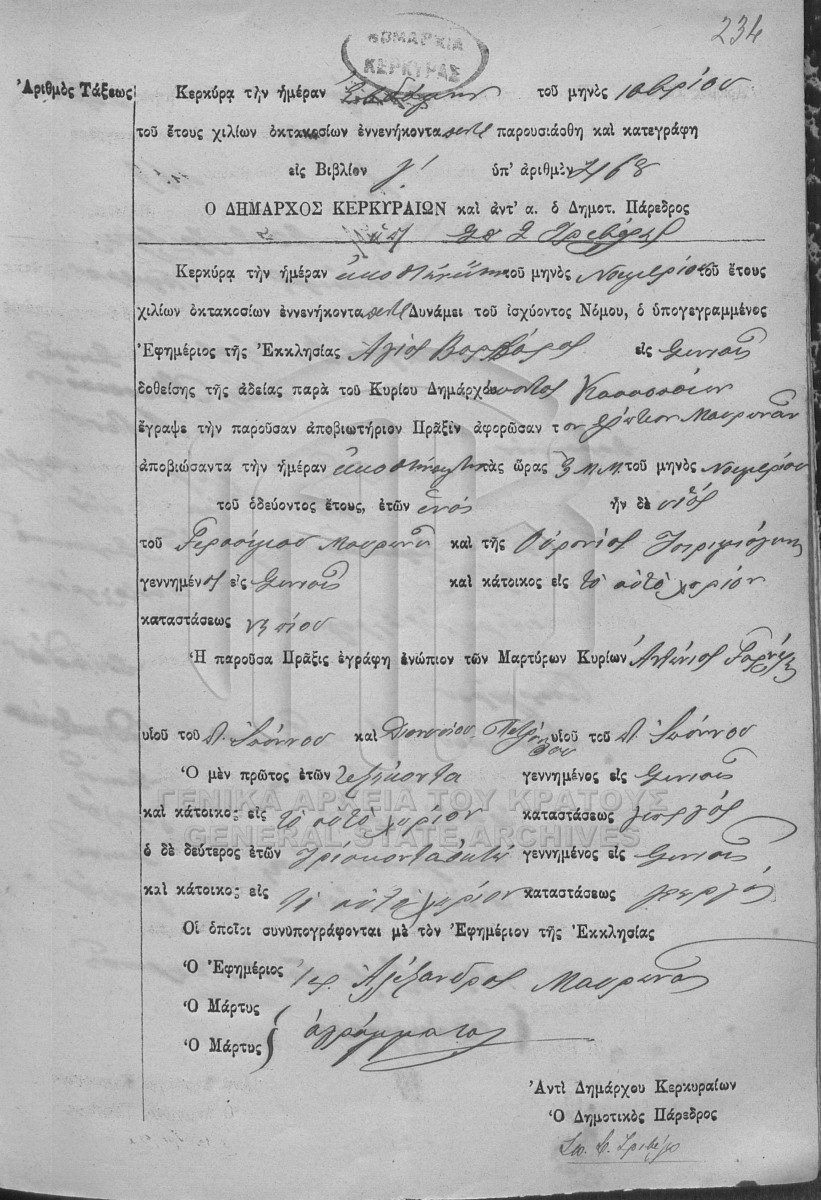 234
ΔΗΜΑΡΧΙΑ
ΚΕΡΚΥΡΑΣ
Ἀριθμὸς Τάξεως
Κερκύρᾳ τὴν ἡμέραν τοῦ μηνὸς 10βρίου
τοῦ ἔτους χιλίων ὀκτακοσίων ἐννενήκοντα πέντε παρουσιάσθη καὶ κατεγράφη
εἰς Βιβλίον γ' ὑπ' ἀριθμὸν 4168
Ὁ ΔΗΜΑΡΧΟΣ ΚΕΡΚΥΡΑΙΩΝ καὶ ἀντ' α. ὁ Δημοτ. Πάρεδρος
Κερκύρᾳ τὴν ἡμέραν τοῦ μηνὸς Νοεμβρίου τοῦ ἔτους
χιλίων ὀκτακοσίων ἐννενήκοντα πέντε Δυνάμει τοῦ ἰσχύοντος Νόμου, ὁ ὑπογεγραμμένος
Ἐφημέριος τῆς Ἐκκλησίας Ἁγίας Βαρβάρας εἰς
δοθείσης τῆς ἀδείας παρὰ τοῦ Κυρίου Δημάρχου
ἔγραψε τὴν παροῦσαν ἀποβιωτήριον Πρᾶξιν ἀφορῶσαν τον Μαυρωνᾶν
ἀποβιώσαντα τὴν ἡμέραν τὰς ὥρας 3 Μ.Μ. τοῦ μηνὸς Νοεμβρίου
τοῦ ὁδεύοντος ἔτους, ἐτῶν ἑνός ἦν δὲ υἱός
τοῦ Γερασίμου Μαυρωνᾶ καὶ τῆς Οὐρανίας
γεννημένος εἰς καὶ κάτοικος εἰς τὸ αὐτὸ χωρίον
καταστάσεως νηπίου
Ἡ παροῦσα Πρᾶξις ἐγράφη ἐνώπιον τῶν Μαρτύρων Κυρίων Ἀντώνιος
υἱοῦ τοῦ Π. Ἰωάννου καὶ Διονυσίου υἱοῦ τοῦ Π. Ἰωάννου
Ὁ μὲν πρῶτος ἐτῶν γεννημένος εἰς
ΓΕΝΙΚΑ ΑΡΧΕΙΑ ΤΟΥ ΚΡΑΤΟΥΣ
καὶ κάτοικος εἰς τὸ αὐτὸ χωρίον καταστάσεως γεωργός
GENERAL STATE ARCHIVES
ὁ δὲ δεύτερος ἐτῶν τριάκοντα ὀκτώ γεννημένος εἰς
καὶ κάτοικος εἰς τὸ αὐτὸ χωρίον καταστάσεως γεωργός
Οἱ ὁποῖοι συνυπογράφονται μὲ τὸν Ἐφημέριον τῆς Ἐκκλησίας
Ὁ Ἐφημέριος Ἱερ. Ἀλέξανδρος Μαυρωνᾶς
Ὁ Μάρτυς
Ὁ Μάρτυς } ἀγράμματοι
Ἀντὶ Δημάρχου Κερκυραίων
Ὁ Δημοτικὸς Πάρεδρος